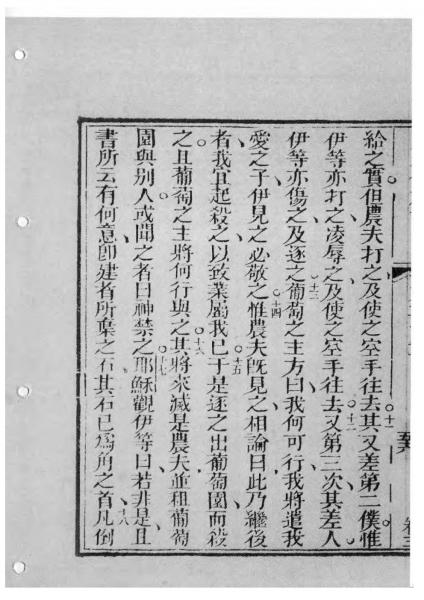 給之實但農夫打之及使之空手往去其又差第二僕惟
伊等亦打之凌辱之及使之空手往去又第三次其差人
伊等亦傷之及逐之葡萄之主方曰我何可行我將遣我
愛之子伊見之必敬之惟農夫既見之相論曰此乃繼後
者我宜起殺之以致業屬我已于是逐之出葡萄園而殺
之且葡萄之主將何行與之其將來滅是農夫並租葡萄
園與别人或聞之者曰神禁之耶穌觀伊等曰若非是且
書所云有何意卽建者所棄之石其石已為角之首凡倒
十一
十二
十三
十四
十五
十六
十七
十八